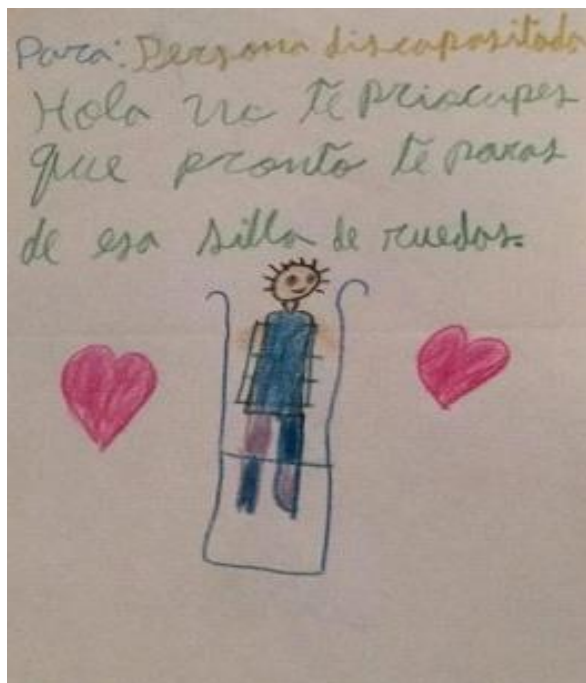 Para: Persona discapasitada
Hola no te priocupes
que pronto te paras
de esa silla de ruedas.